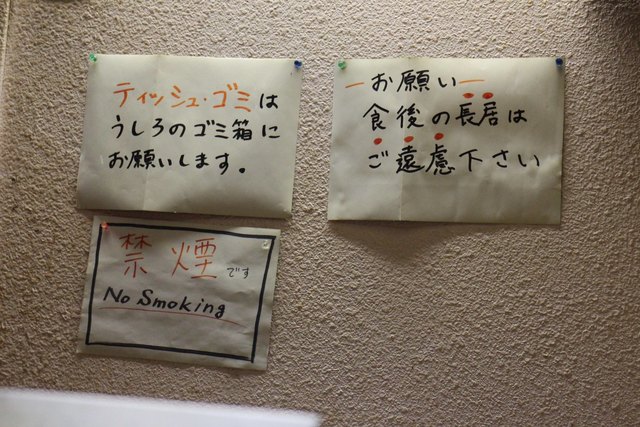 ティッシュ・ゴミは
うしろのゴミ箱に
お願いします。
ーお願いー
食後の長居は
ご遠慮下さい
禁煙です
No Smoking